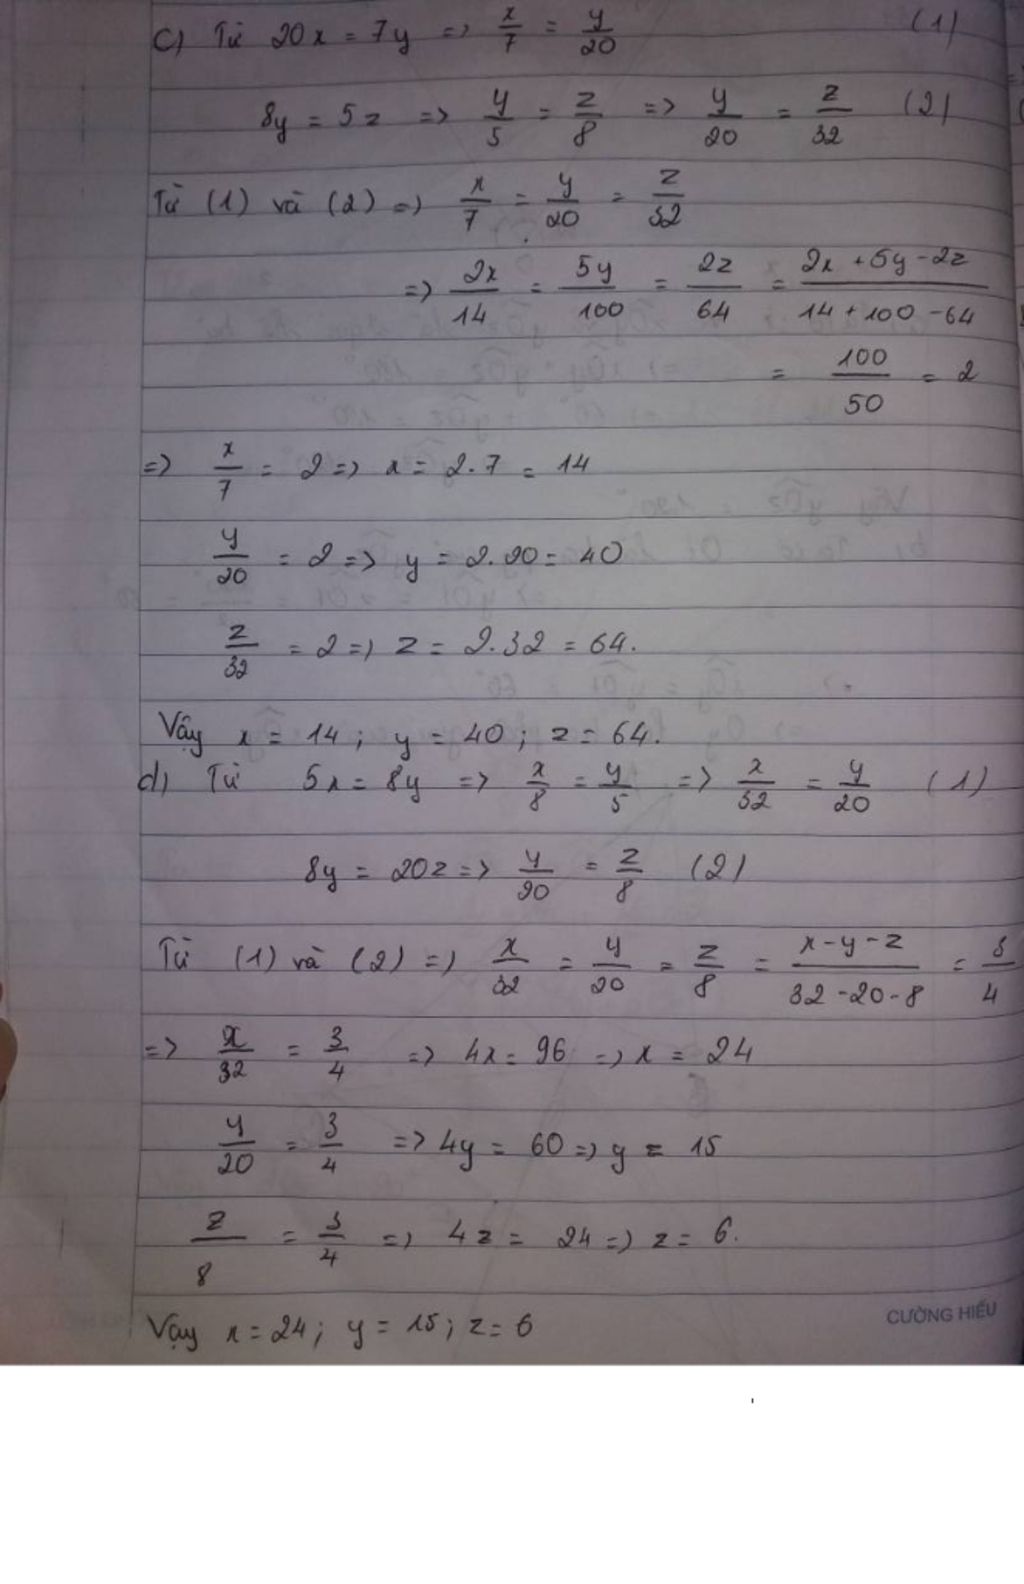 c) Từ 20x = 7y => x/7 = y/20 (1)
8y = 5z => y/5 = z/8 => y/20 = z/32 (2)
Từ (1) và (2) => x/7 = y/20 = z/32
=> 2x/14 = 5y/100 = 2z/64 = (2x + 5y - 2z)/(14 + 100 - 64)
= 100/50 = 2
=> x/7 = 2 => x = 2.7 = 14
y/20 = 2 => y = 2.20 = 40
z/32 = 2 => z = 2.32 = 64.
Vậy x = 14 ; y = 40 ; z = 64.
d) Từ 5x = 8y => x/8 = y/5 => x/32 = y/20 (1)
8y = 20z => y/20 = z/8 (2)
Từ (1) và (2) => x/32 = y/20 = z/8 = (x - y - z)/(32 - 20 - 8) = 3/4
=> x/32 = 3/4 => 4x = 96 => x = 24
y/20 = 3/4 => 4y = 60 => y = 15
z/8 = 3/4 => 4z = 24 => z = 6.
Vậy x = 24 ; y = 15 ; z = 6
CƯỜNG HIẾU